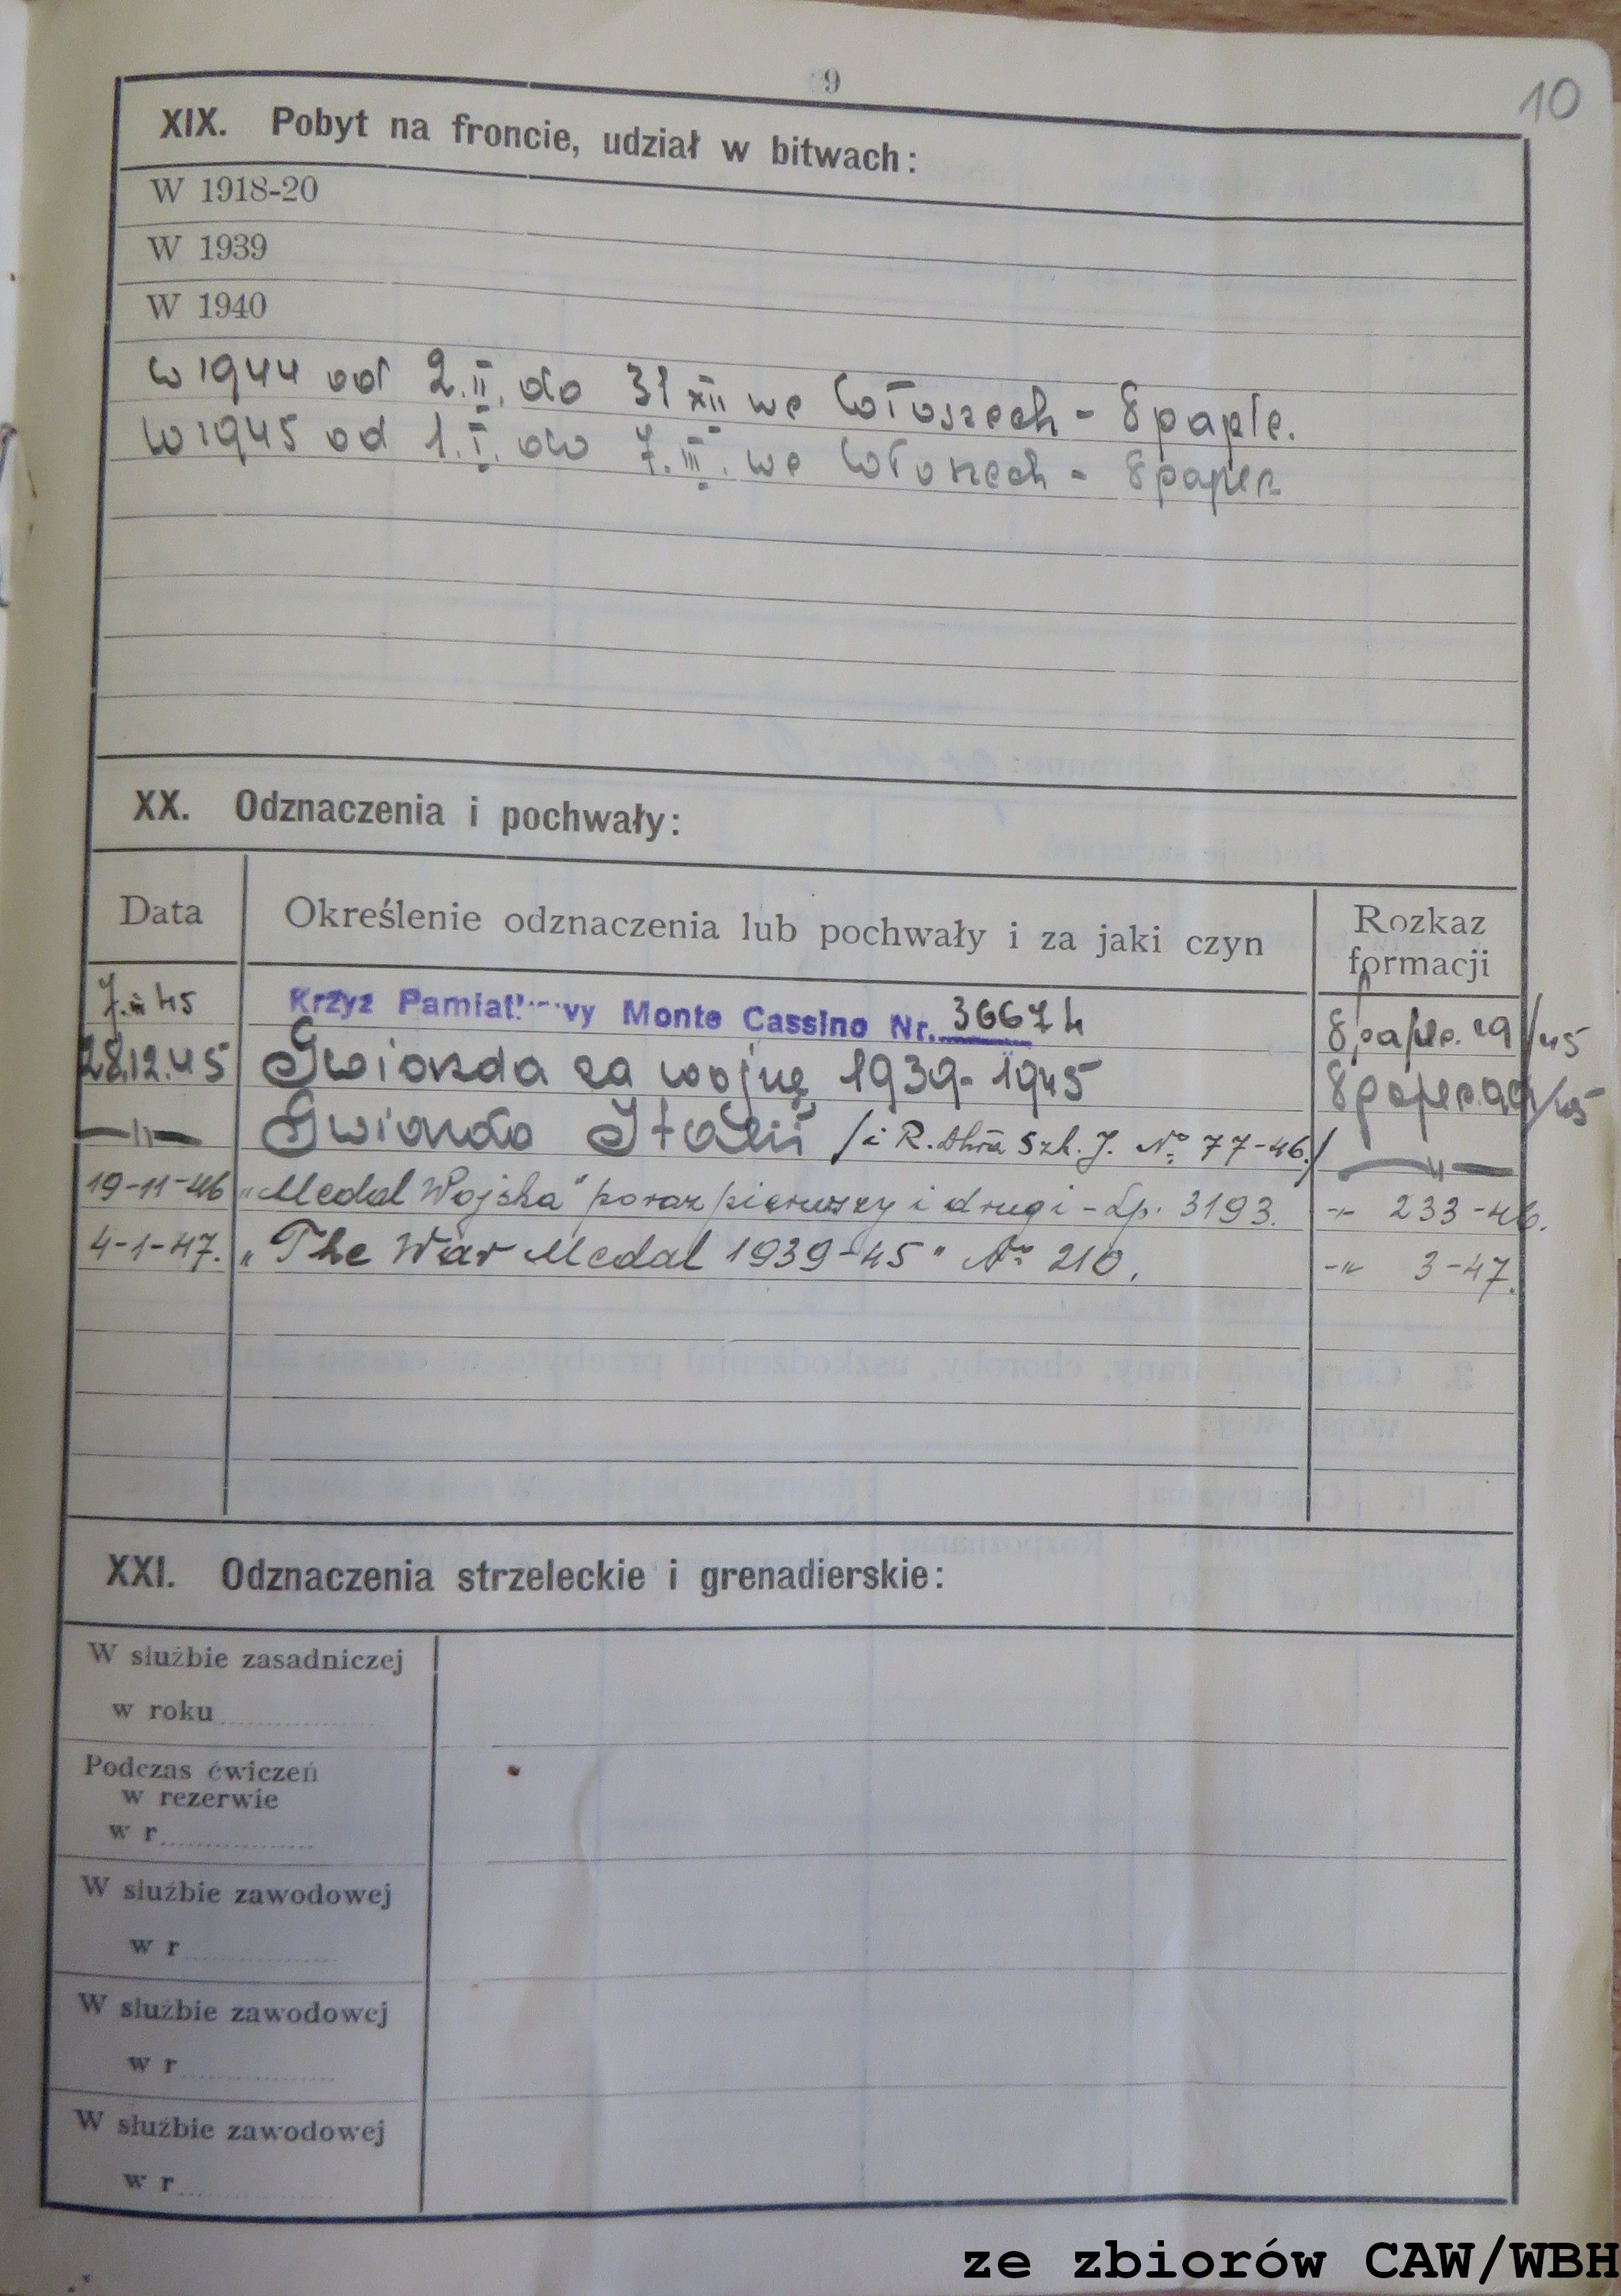 9
10
XIX. Pobyt na froncie, udział w bitwach:
W 1918-20
W 1939
W 1940
W 1944 od 2.II. do 31 XII we Włoszech - 8 paplc.
W 1945 od 1.I. do 7.III. we Włoszech - 8 paplc
XX. Odznaczenia i pochwały:
Data Określenie odznaczenia lub pochwały i za jaki czyn Rozkaz formacji
45 Krzyż Pamiątkowy Monte Cassino Nr. 36674 8 paplc. 29/45
28.12.45 Gwiazda za wojnę 1939-1945 8 paplc. 99/45
—"— Gwiazda Italii /i R. Szk. J. No 77-46./ —"—
19-11-46 „Medal Wojska" poraz pierwszy i drugi - Lp. 3193. -"- 233-46.
4-1-47. „The War Medal 1939-45" No 210. -"- 3-47.
XXI. Odznaczenia strzeleckie i grenadierskie:
W służbie zasadniczej
w roku
Podczas ćwiczeń
w rezerwie
w r
W służbie zawodowej
w r
W służbie zawodowej
w r
W służbie zawodowej
w r
ze zbiorów CAW/WBH